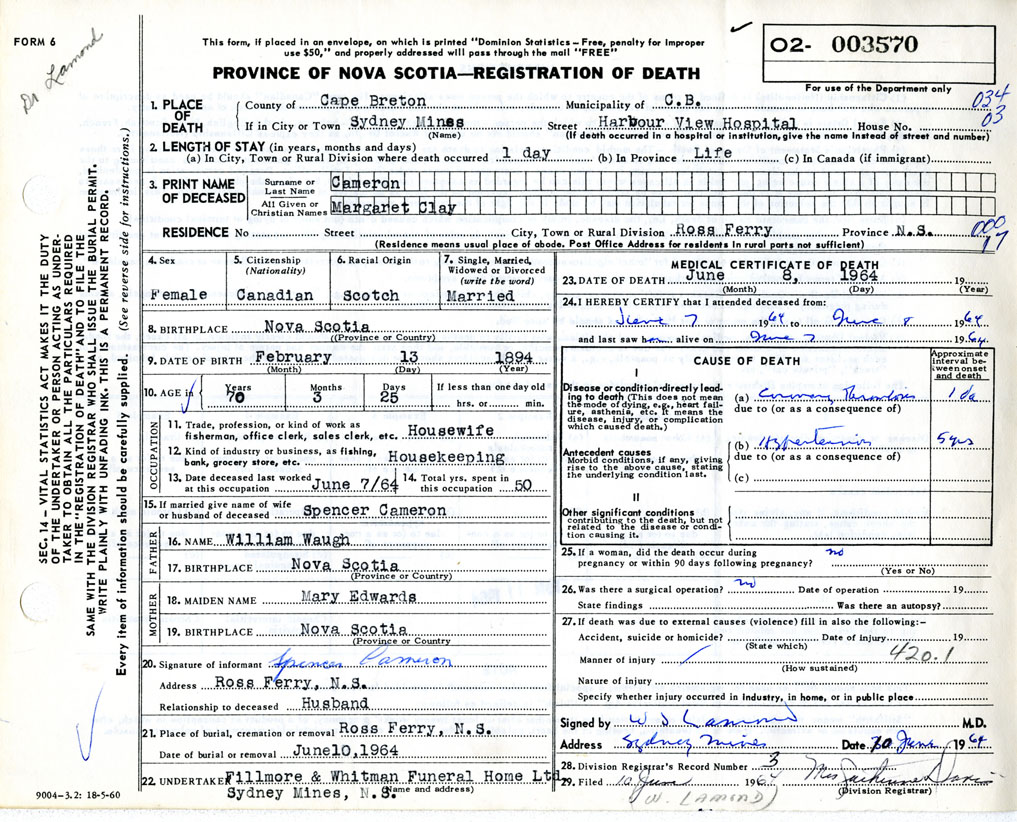 FORM 6
Dr Lamond
This form, if placed in an envelope, on which is printed "Dominion Statistics – Free, penalty for improper
use $50," and properly addressed will pass through the mail "FREE"
PROVINCE OF NOVA SCOTIA—REGISTRATION OF DEATH
O2- 003570
For use of the Department only
034
03
SEC. 14 – VITAL STATISTICS ACT MAKES IT THE DUTY
OF THE UNDERTAKER OR PERSON ACTING AS UNDER-
TAKER TO OBTAIN ALL THE PARTICULARS REQUIRED
IN THE "REGISTRATION OF DEATH" AND TO FILE THE
SAME WITH THE DIVISION REGISTRAR WHO SHALL ISSUE THE BURIAL PERMIT.
WRITE PLAINLY WITH UNFADING INK. THIS IS A PERMANENT RECORD.
Every item of information should be carefully supplied. (See reverse side for instructions.)
1. PLACE OF DEATH
County of Cape Breton Municipality of C.B.
If in City or Town Sydney Mines Street Harbour View Hospital House No.
(Name) (If death occurred in a hospital or institution, give the name instead of street and number)
2. LENGTH OF STAY (in years, months and days)
(a) In City, Town or Rural Division where death occurred 1 day (b) In Province Life (c) In Canada (if immigrant)
3. PRINT NAME OF DECEASED
Surname or Last Name Cameron
All Given or Christian Names Margaret Clay
RESIDENCE No Street City, Town or Rural Division Ross Ferry Province N.S.
000
17
(Residence means usual place of abode. Post Office Address for residents in rural parts not sufficient)
4. Sex
Female
5. Citizenship
(Nationality)
Canadian
6. Racial Origin
Scotch
7. Single, Married, Widowed or Divorced
(write the word)
Married
8. BIRTHPLACE Nova Scotia
((Province or Country)
9. DATE OF BIRTH February 13 1894
(Month) (Day) (Year)
10. AGE in
Years Months Days If less than one day old
70 3 25 hrs. or min.
OCCUPATION
11. Trade, profession, or kind of work as
fisherman, office clerk, sales clerk, etc. Housewife
12. Kind of industry or business, as fishing,
bank, grocery store, etc. Housekeeping
13. Date deceased last worked at this occupation June 7/64
14. Total yrs. spent in this occupation 50
15. If married give name of wife
or husband of deceased Spencer Cameron
FATHER
16. NAME William Waugh
17. BIRTHPLACE Nova Scotia
(Province or Country)
MOTHER
18. MAIDEN NAME Mary Edwards
19. BIRTHPLACE Nova Scotia
(Province or Country
20. Signature of informant Spencer Cameron
Address Ross Ferry, N.S.
Relationship to deceased Husband
21. Place of burial, cremation or removal Ross Ferry, N.S.
Date of burial or removal June10,1964
22. UNDERTAKER Fillmore & Whitman Funeral Home Ltd
Sydney Mines, N.S. (Name and address)
9004-3.2: 18-5-60
MEDICAL CERTIFICATE OF DEATH
23. DATE OF DEATH June 8, 1964 19
(Month) (Day) (Year)
24. I HEREBY CERTIFY that I attended deceased from:
June 7 1964 to June 8 1964
and last saw h alive on June 7 1964
CAUSE OF DEATH
Approximate interval between onset and death
I
Disease or condition directly lead-
ing to death (This does not mean
the mode of dying, e.g., heart fail-
ure, asthenia, etc. It means the
disease, injury, or complication
which caused death.)
(a) Coronary Thrombosis 1 da
due to (or as a consequence of)
Antecedent causes
Morbid conditions, if any, giving
rise to the above cause, stating
the underlying condition last.
(b) Hypertension 5 yrs
due to (or as a consequence of)
(c)
II
Other significant conditions
contributing to the death, but not
related to the disease or condi-
tion causing it.
25. If a woman, did the death occur during no
pregnancy or within 90 days following pregnancy?
(Yes or No)
26. Was there a surgical operation? no Date of operation 19
State findings Was there an autopsy?
27. If death was due to external causes (violence) fill in also the following:–
Accident, suicide or homicide? Date of injury 19
(State which)
420.1
Manner of injury
(How sustained)
Nature of injury
Specify whether injury occurred in industry, in home, or in public place
Signed by W S Lamond M.D.
Address Sydney Mines Date 10 June 1964
28. Division Registrar's Record Number 3
29. Filed 10 June 1964 Mrs
(Division Registrar)
(W. LAMOND)